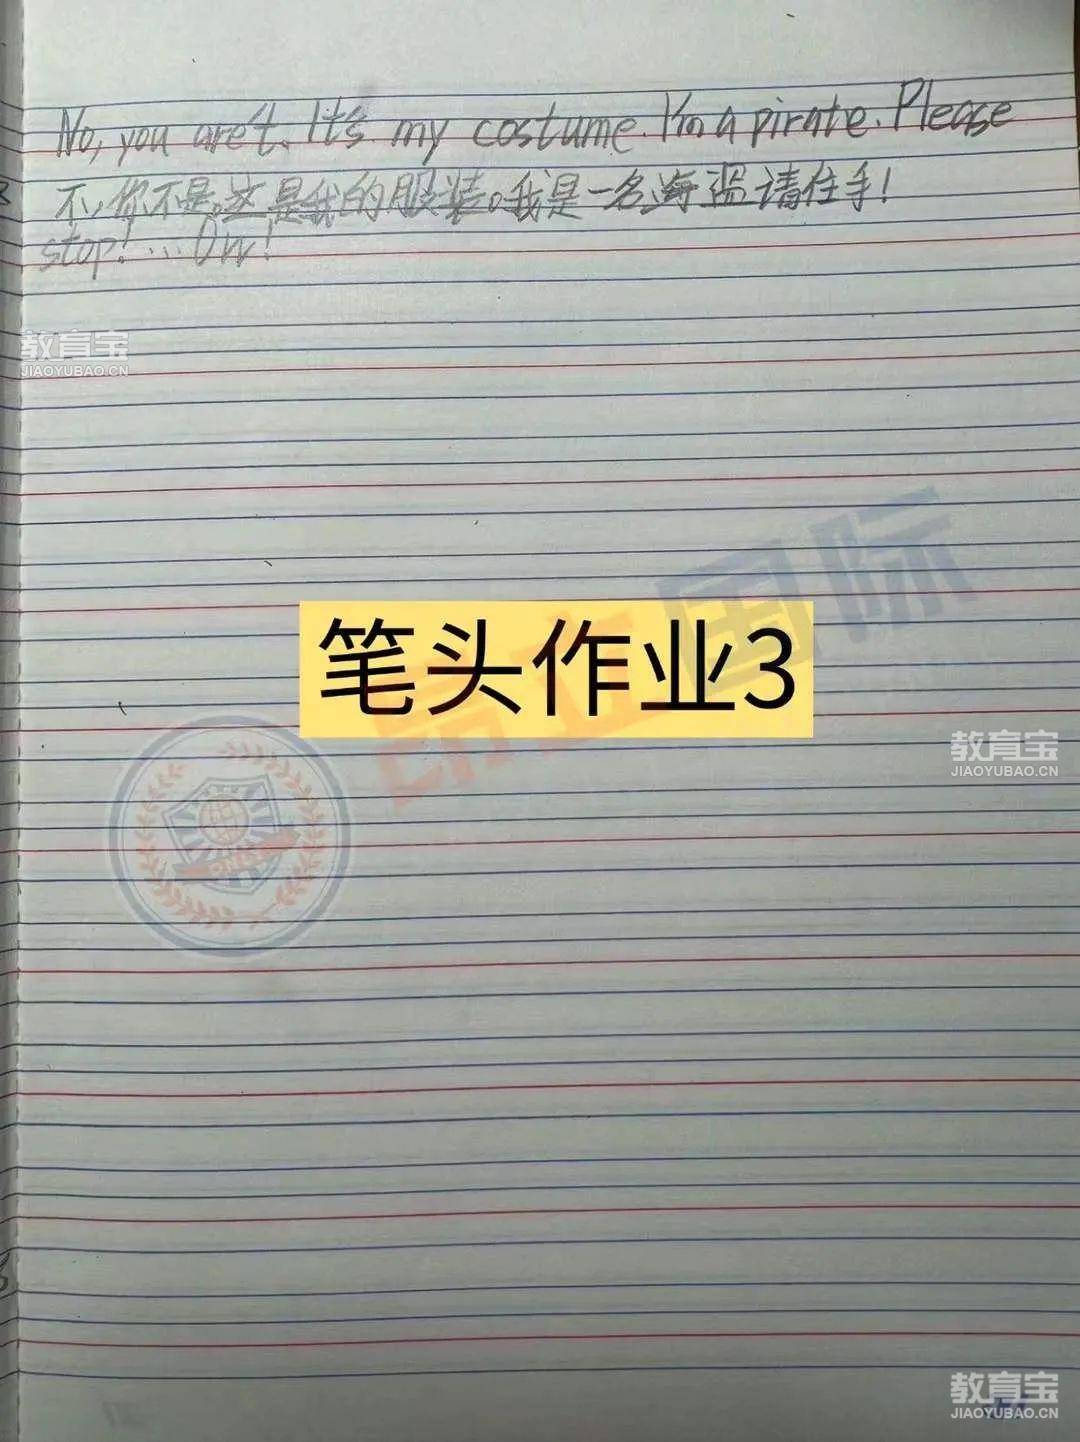 No, you are't. It's my costume. I'm a pirate. Please
不,你不是。这是我的服装。我是一名海盗请住手!
stop! ... Ow!
教育宝
JIAOYUBAO.CN
昂立国际
笔头作业3
教育宝
JIAOYUBAO.CN
教育宝
JIAOYUBAO.CN